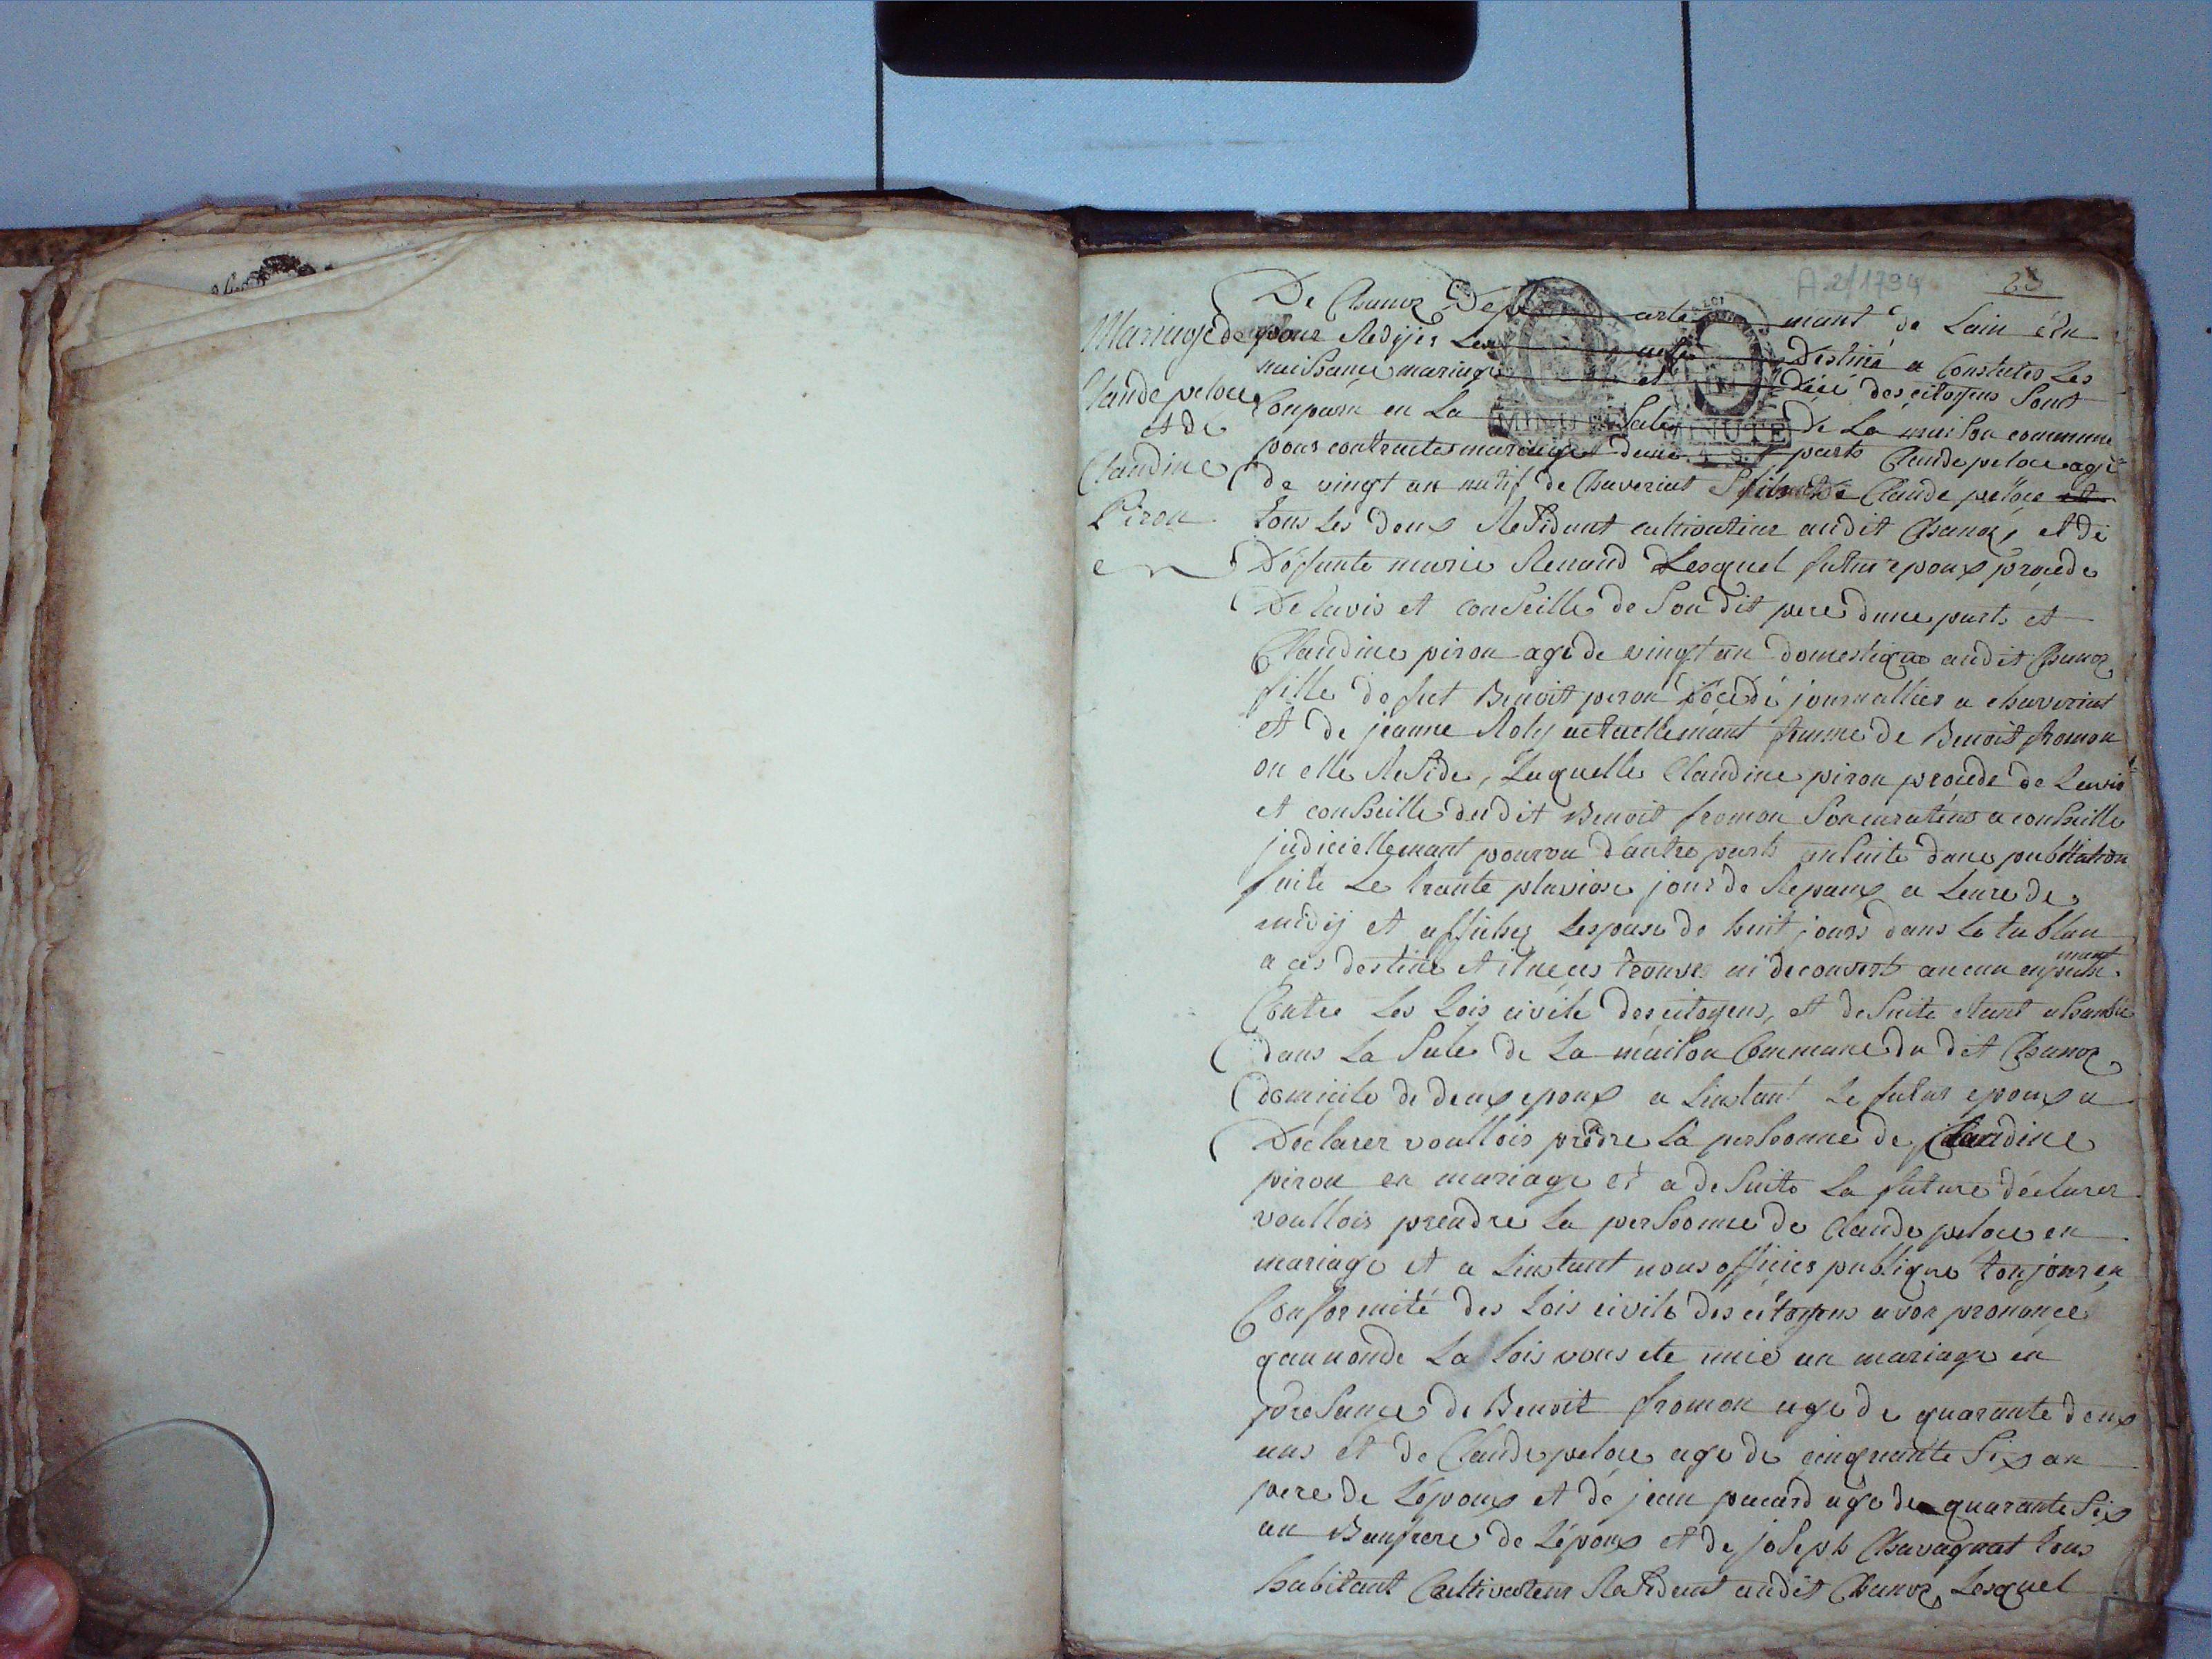 A 2/1794
De Chanoz Departemant de Lain élu
Mariage de
Claude peloce
et de
Claudine
Piron
pour Redijer Les acte Destiné a Constater Les
naissance mariage et Décé des citoyens Sont
Conparu en La Sale de La maison commune
MINUTE
MINUTE
pour contracter mariage dune parts Claude peloce agé
de vingt an natif de Chaveriat fils de Claude peloce et
tous les deux Residant cultivateur audit Chanoz, et de
Défunte marie Renaud Lesquel futur epoux procéde
De lavis et conseille de Son dit pere dune parts et
Claudine piron age de vingt an domestique audit Chanoz
fille de fut Benoit piron décédé journallier a chaveriat
et de jeanne Roly actuellemant femme de Benoit fromon
ou elle Reside, Laquelle Claudine piron procéde de Lavis
et conseille dudit Benoit fromon Son curateur a conseille
judiciellemant pourvu dautre parts ensuite dune publication
faite Le trante pluviose jour de Repaux a Leure de
midij et affichez Lespase de huit jours dans Le tablau
a ces destiné et il ne ces trouve ni decouvert aucun enpeche
mant
Contre Les Lois civile des citoyens, et de Suite etant asamblé
dans La Sale de La maison Commune du dit Chanoz
domicile de deux epoux a Linstant Le futur epoux a
Déclarer voullois prêdre La persoonne de Claudine
piron en mariage et a de Suite La future déclarer
voullois prendre La persoonne de Claude peloce en
mariage et a Linstant nous officier publique toujour en
Conformité des Lois civile des citoyens avon prononcé
quau nonde La lois vous ete unie en mariage en
presance de Benoit fromon age de quarante deux
ans et de Claude peloce age de cinquante Six an
pere de Lépoux et de jean pacard age de quarante Six
an Baufrere de Lépoux et de joseph Chavagnat tous
habitant Cultivateur Residant audit Chanoz Lesquel